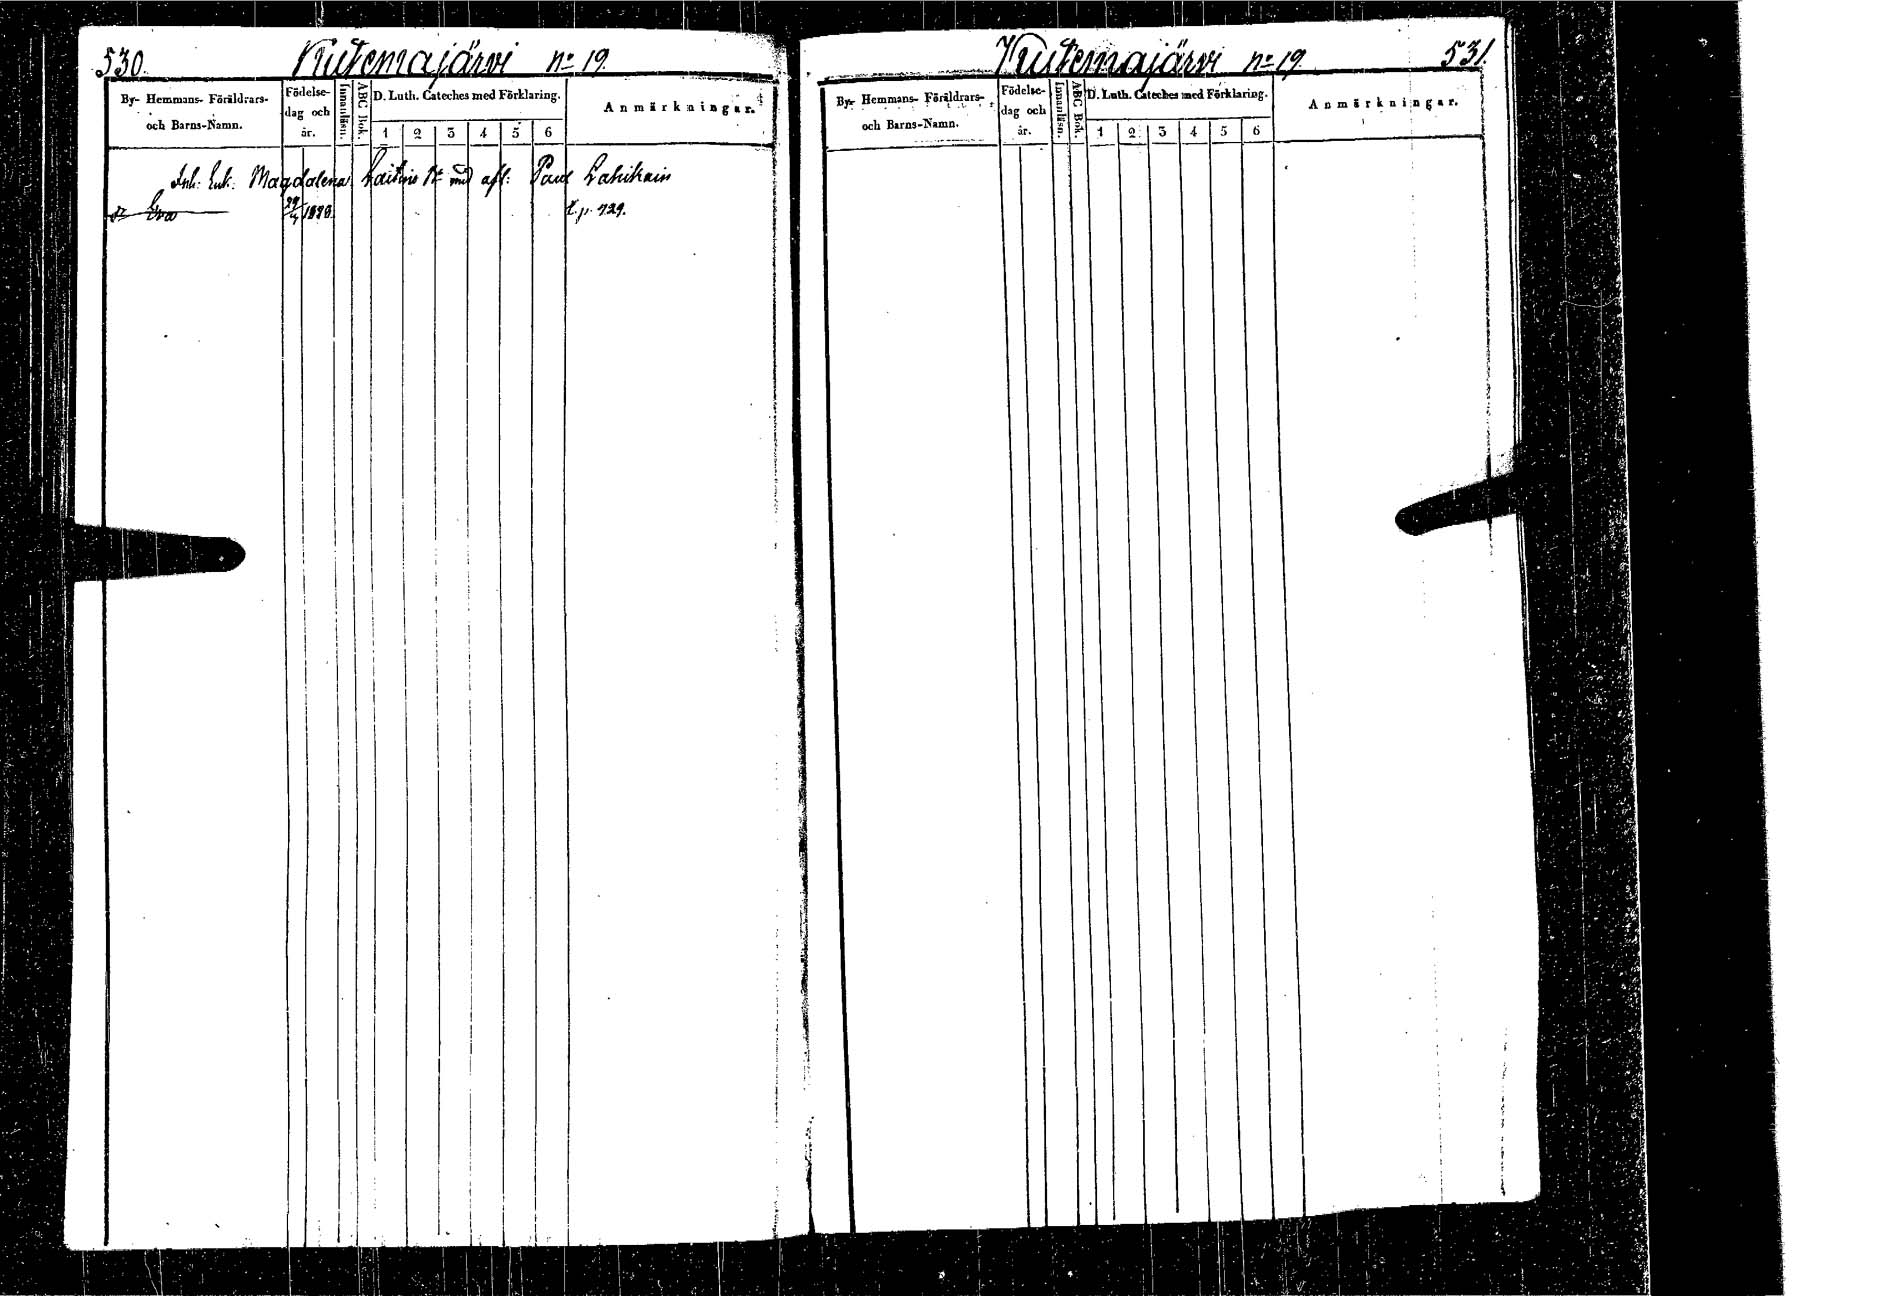 530. Kutemajärvi no 19.
By- Hemmans- Föräldrars- och Barns-Namn.
Födelse- dag och år.
Innanläsn.
ABC Bok.
D. Luth. Cateches med Förklaring.
1 2 3 4 5 6
Anmärkningar.
Inh: Enk: Magdalena Laitin Dr med afl: Paul Lahikain
dr Eva 1820. t.p. 729.
Kutemajärvi no 19 531.
By- Hemmans- Föräldrars- och Barns-Namn.
Födelse- dag och år.
Innanläsn.
ABC Bok.
D. Luth. Cateches med Förklaring.
1 2 3 4 5 6
Anmärkningar.